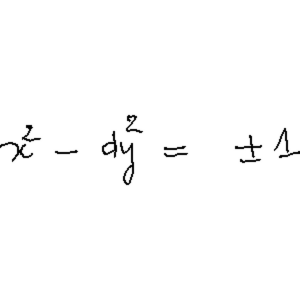 x² - dy² = ±1